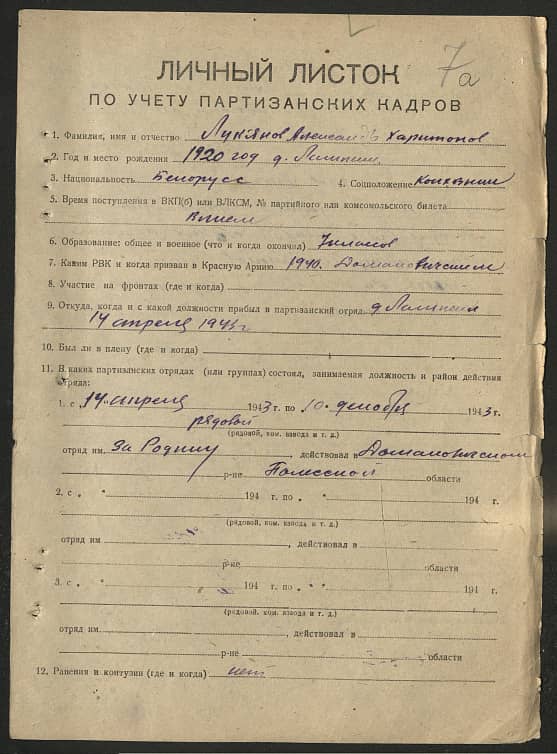 7а
ЛИЧНЫЙ ЛИСТОК
ПО УЧЕТУ ПАРТИЗАНСКИХ КАДРОВ
1. Фамилия, имя и отчество Лукьянов Александр Харитонов
2. Год и место рождения 1920 год д.
3. Национальность Белорусс 4. Соцположение Колхозник
5. Время поступления в ВКП(б) или ВЛКСМ, № партийного или комсомольского билета
6. Образование: общее и военное (что и когда окончил) 7 классов
7. Каким РВК и когда призван в Красную Армию 1940. Домановичским
8. Участие на фронтах (где и когда)
9. Откуда, когда и с какой должности прибыл в партизанский отряд д.
14 апреля 1943 г
10. Был ли в плену (где и когда)
11. В каких партизанских отрядах (или группах) состоял, занимаемая должность и район действия
отряда:
1. с „14" апреля 1943 г. по „10" декабр 1943 г.
рядовой
(рядовой, ком. взвода и т. д.)
отряд им. За Родину действовал в Домановичском
р-не Полесской области
2. с „ " 194 г. по „ " 194 г.
(рядовой, ком. взвода и т. д.)
отряд им , действовал в
р-не области
3. с „ " 194 г. по „ " 194 г.
(рядовой, ком. взвода и т. д.)
отряд им. , действовал в
р-не области
12. Ранения и контузии (где и когда) нет